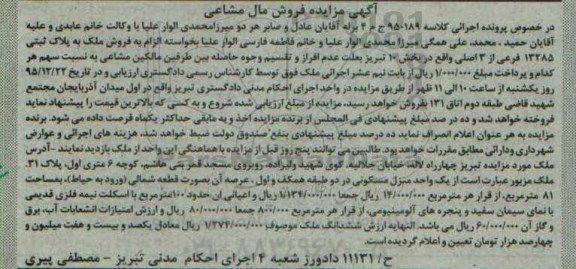 آگهی مزایده فروش مال مشاعی
در خصوص پرونده اجرائی کلاسه ۹۵۰۱۸۹ ج م ۴ برله آقایان عادل و صابر هر دو میرزامحمدی الوار علیا با وکالت خانم عابدی و علیه
آقایان حمید ، محمد، علی همگی میرزا محمدی الوار علیا و خانم فاطمه فارسی الوار علیا بخواسته الزام به فروش ملک به پلاک ثبتی
۱۳۲۸۵ فرعی از ۳ اصلی واقع در بخش ۱۰ تبریز بعلت عدم افراز و تقسیم وجوه حاصله بین طرفین مالکین مشاعی به نسبت سهم هر
کدام و پرداخت مبلغ ۱/۰۰۰/۰۰۰ ریال از بابت نیم عشر اجرائی ملک فوق توسط کارشناس رسمی دادگستری ارزیابی و در تاریخ ۹۵/۱۲/۲۲
روز یکشنبه از ساعت ۱۰ الی ۱۱ ظهر از طریق مزایده در واحد اجرای احکام مدنی دادگستری تبریز واقع در اول میدان آذربایجان مجتمع
شهید قاضی طبقه دوم اتاق ۱۳۱ بفروش خواهد رسید. مزایده از مبلغ ارزیابی شده شروع و به کسی که بالاترین قیمت را پیشنهاد نماید
فروخته خواهد شد و ده در صد مبلغ پیشنهادی فی المجلس از برنده مزایده اخذ و به مابقی حداکثر یکماه فرصت داده می شود. برنده
مزایده به هر عنوان اعلام انصراف نماید ده درصد مبلغ پیشنهادی بنفع صندوق دولت ضبط خواهد شد، هزینه های اجرائی و عوارض
شهرداری ودارائی مطابق مقررات خواهد بود. طالبین می توانند پنج روز قبل از مزایده با هماهنگی این واحد از ملک بازدید نمایند - آدرس
ملک مورد مزایده تبریز چهارراه لاله خیابان جلالیه، کوی شهید ولیزاده، روبروی مسجد قمر بنی هاشم، کوچه ۶ متری اول، پلاک ۳۱.
ملک مزبور عبارت است از یک واحد منزل مسکونی در دو طبقه همکف و اول ، عرصه آن بصورت قطعه شمالی (ورود به حیاط)، بمساحت
۸۱ مترمربع، از قرار هر مترمربع ۱۴/۰۰۰/۰۰۰ ریال جمعا ۱/۱۳۴/۰۰۰/۰۰۰ ریال و اعیانی آن حدود ۱۰۰ مترمربع با اسکلت نیمه فلزی قدیمی
با نمای سیمان سفید و پنجره های آلومینیومی، از قرار هر مترمربع ۸۰۰/۰۰۰ جمعا ۸۰/۰۰۰/۰۰۰ ریال و ارزش امتیازات انشعابات آب، برق
و گاز آن ۶۰/۰۰۰/۰۰۰ ریال می باشد. النهایه ارزش ششدانگ ملک موصوف ۱/۲۷۴/۰۰۰/۰۰۰ ریال معادل یکصد و بیست و هفت میلیون و
چهارصد هزار تومان تعیین و اعلام گردیده است.
ح/ ۱۱۱۳۱ دادورز شعبه ۴ اجرای احکام مدنی تبریز - مصطفی پیری